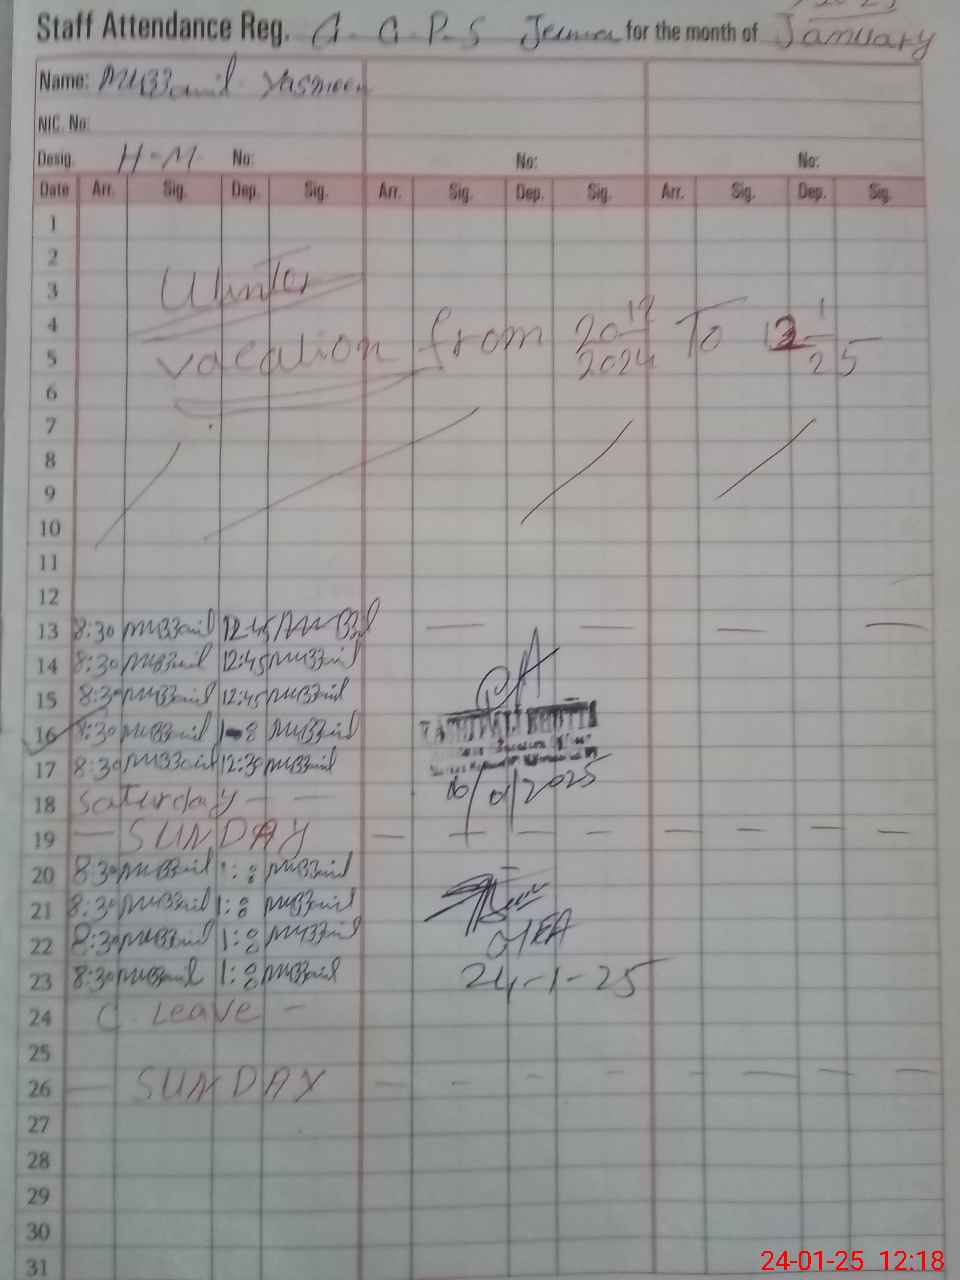 Staff Attendance Reg. G-G-P-S for the month of January
Name: Muzzamil Yasmeen
NIC. No:
Desig. H-M- No: No: No:
Date Arr. Sig. Dep. Sig. Arr. Sig. Dep. Sig. Arr. Sig. Dep. Sig.
1
2
3 Winter
4
5 vacation from 20 12 2024 To 12 1 25
6
7
8
9
10
11
12
13 8:30 Muzzamil 12:45 Muzzamil
14 8:30 Muzzamil 12:45 Muzzamil
15 8:30 Muzzamil 12:45 Muzzamil
16 8:30 Muzzamil 1-8 Muzzamil
17 8:30 Muzzamil 12:30 Muzzamil
16/01/2025
18 Saturday - -
19 - SUNDAY - - - - - - - -
20 8:30 Muzzamil 1:8 Muzzamil
21 8:30 Muzzamil 1:8 Muzzamil
22 8:30 Muzzamil 1:8 Muzzamil
23 8:30 Muzzamil 1:8 Muzzamil
24-1-25
24 C. Leave -
25
26 - SUNDAY - - - - - - - -
27
28
29
30
31
24-01-25 12:18